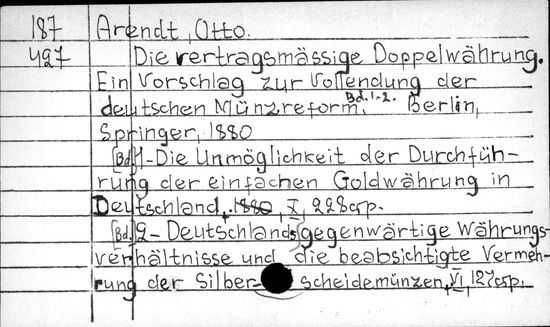 187 Arendt, Otto.
497 Die vertragsmässige Doppelwährung.
Ein Vorschlag zur Vollendung der
deutschen Münzreform. Bd. 1-2. Berlin,
Springer, 1880
[Bd.] 1-Die Unmöglichkeit der Durchfüh-
rung der einfachen Goldwährung in
Deutschland, 1880, X, 228 стр.
[Bd.] 2-Deutschlands gegenwärtige Währungs-
verhältnisse und die beabsichtigte Vermeh-
rung der Silber- scheidemünzen, VI, 127 стр.